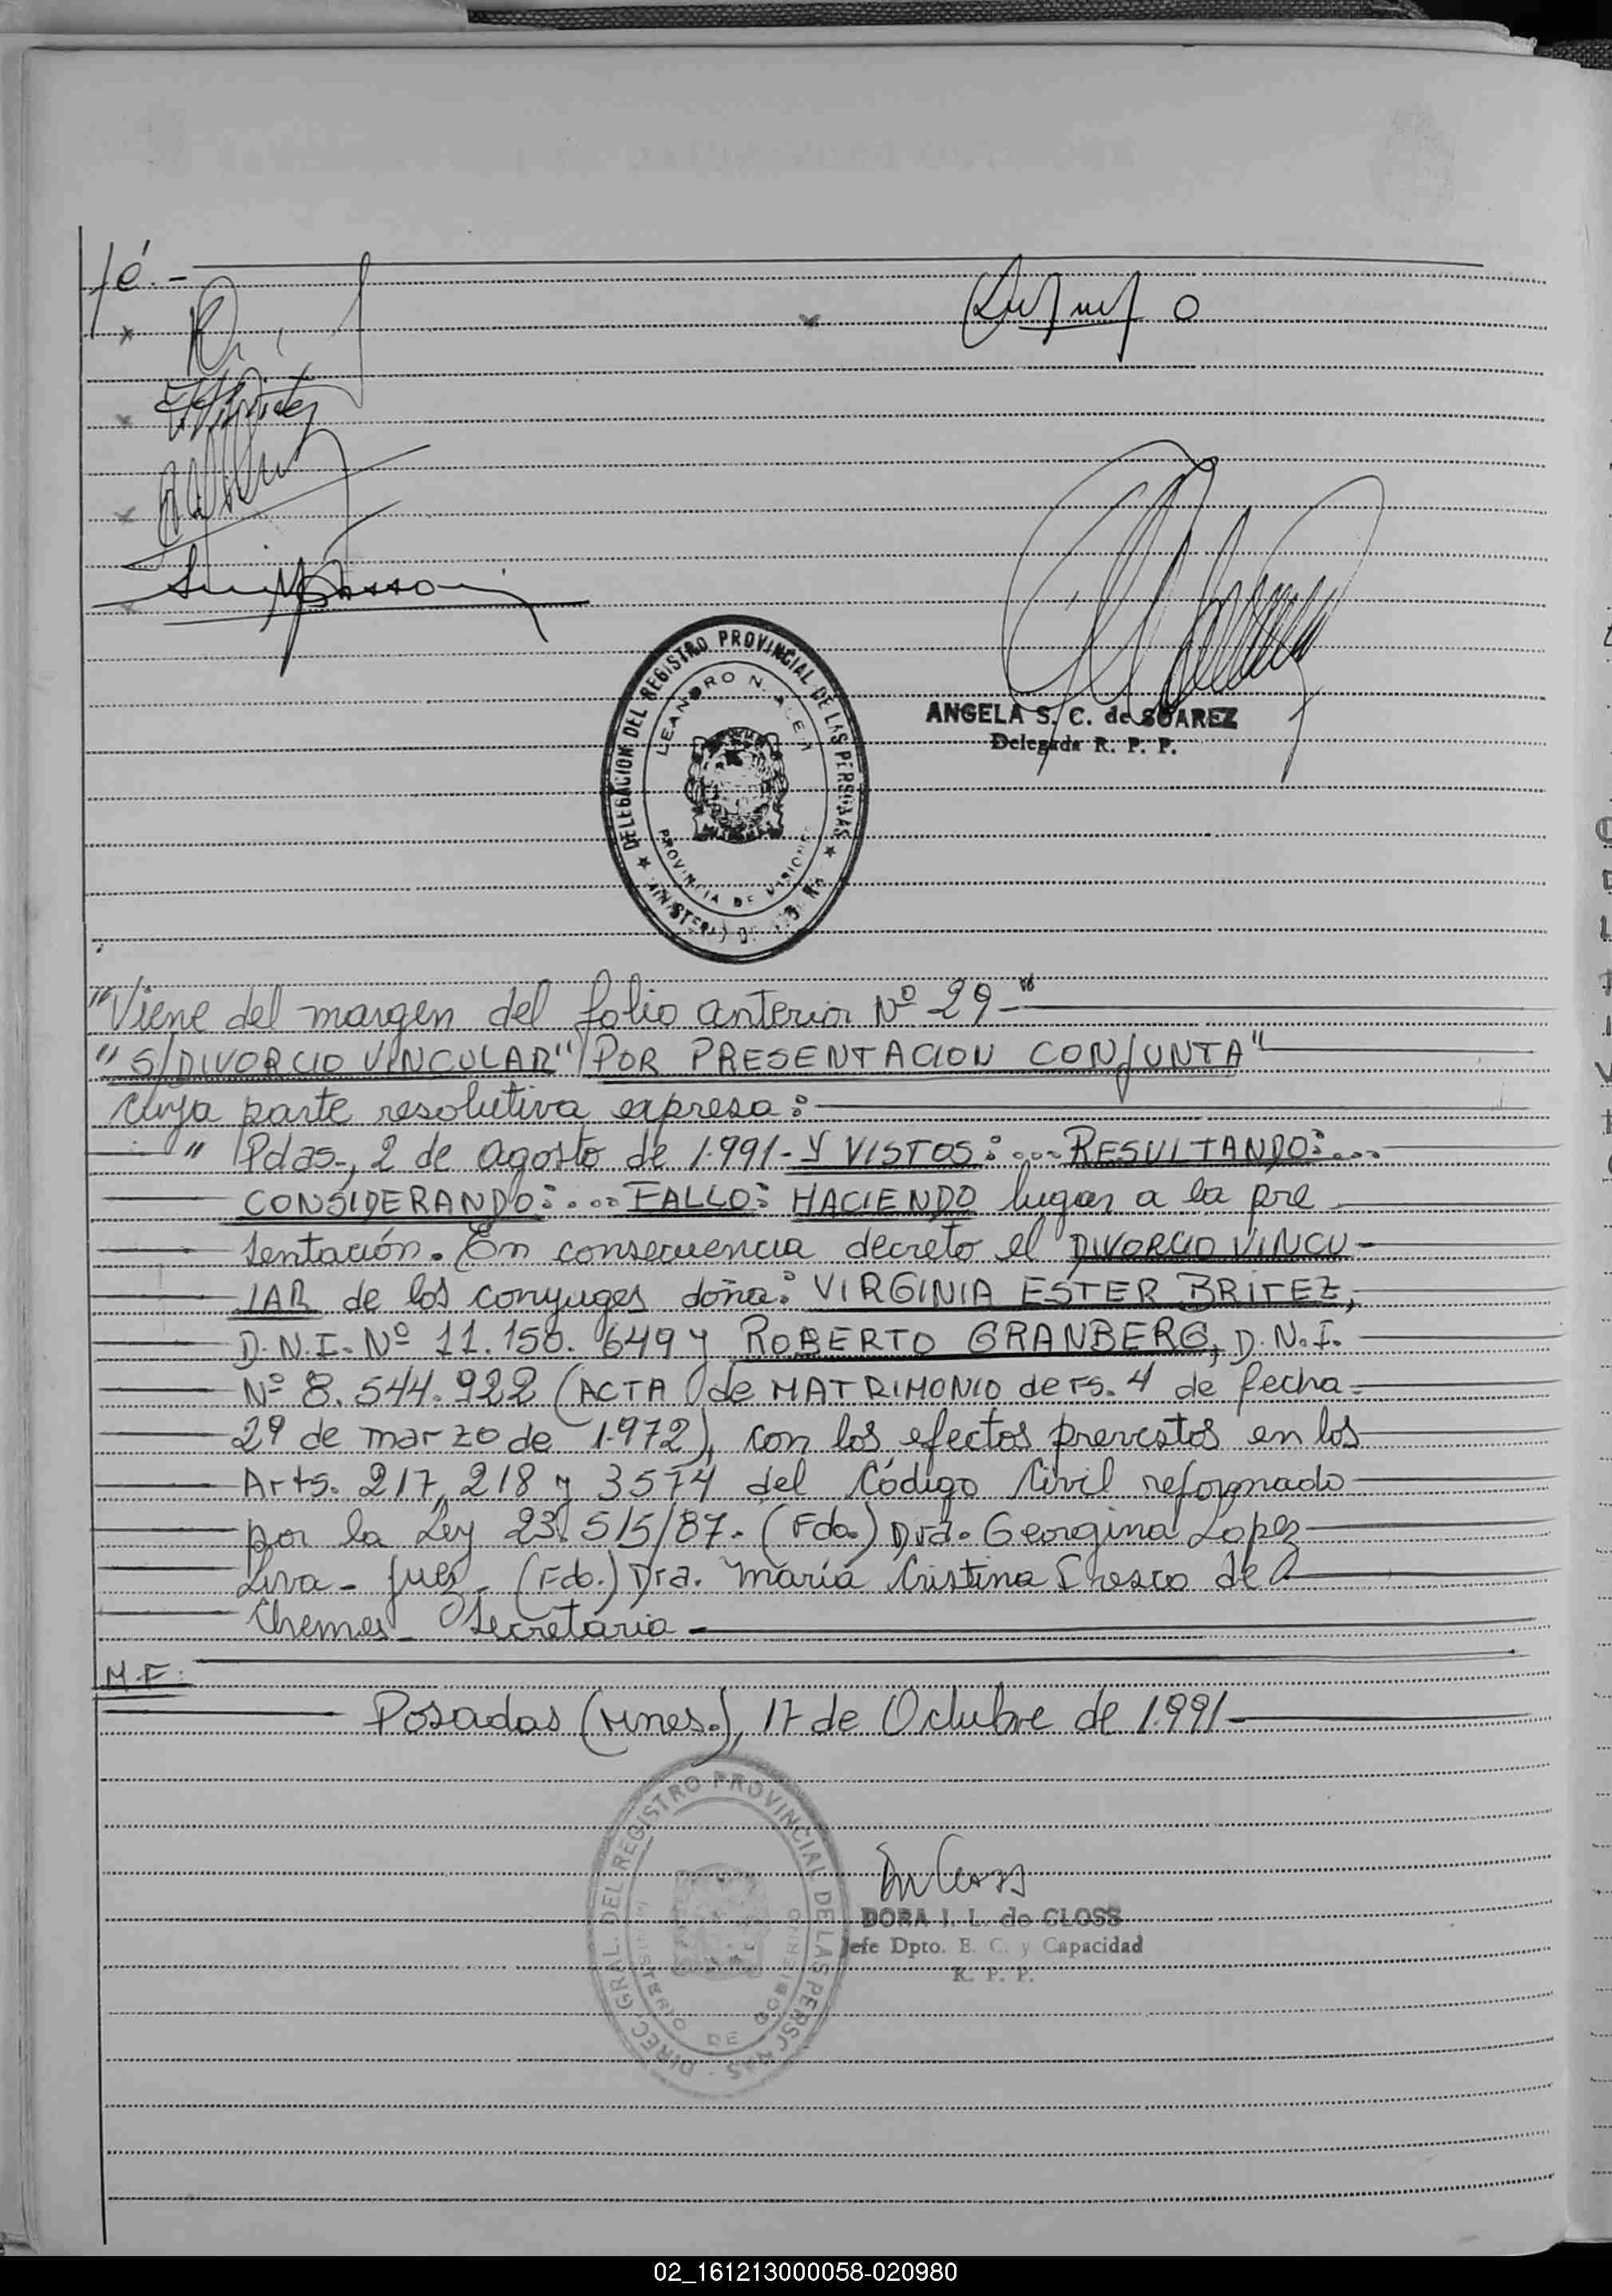 fé.-
ANGELA S. C. de SUAREZ
Delegada R. P. P.
DELEGACION DEL REGISTRO PROVINCIAL DE LAS PERSONAS
LEANDRO N. ALEM
PROVINCIA DE MISIONES
"Viene del margen del folio anterior Nº 29-"
"S/DIVORCIO VINCULAR" POR PRESENTACION CONJUNTA"
cuya parte resolutiva expresa:
" Pdas., 2 de agosto de 1.991- Y VISTOS:... RESULTANDO:...
CONSIDERANDO:... FALLO: HACIENDO lugar a la pre
sentación. En consecuencia decreto el DIVORCIO VINCU-
LAR de los conyuges doña: VIRGINIA ESTER BRITEZ,
D.N.I. Nº 11.150.649 y ROBERTO GRANBERG, D.N.I.
Nº 8.544.922 (ACTA de MATRIMONIO de Fs. 4 de fecha
29 de marzo de 1.972), con los efectos previstos en los
Arts. 217, 218 y 3574 del Código Civil reformado
por la Ley 23.515/87. (Fdo.) Dra. Georgina Lopez
Liva- Juez- (Fdo.) Dra. María Cristina de
Chemes- Secretaria-
M.F:
Posadas (Mnes.), 17 de Octubre de 1.991-
DIREC. GRAL. DEL REGISTRO PROVINCIAL DE LAS PERSONAS
MINISTERIO DE GOBIERNO
DORA I. L. de CLOSS
Jefe Dpto. E. C. y Capacidad
R. P. P.
02_161213000058-020980